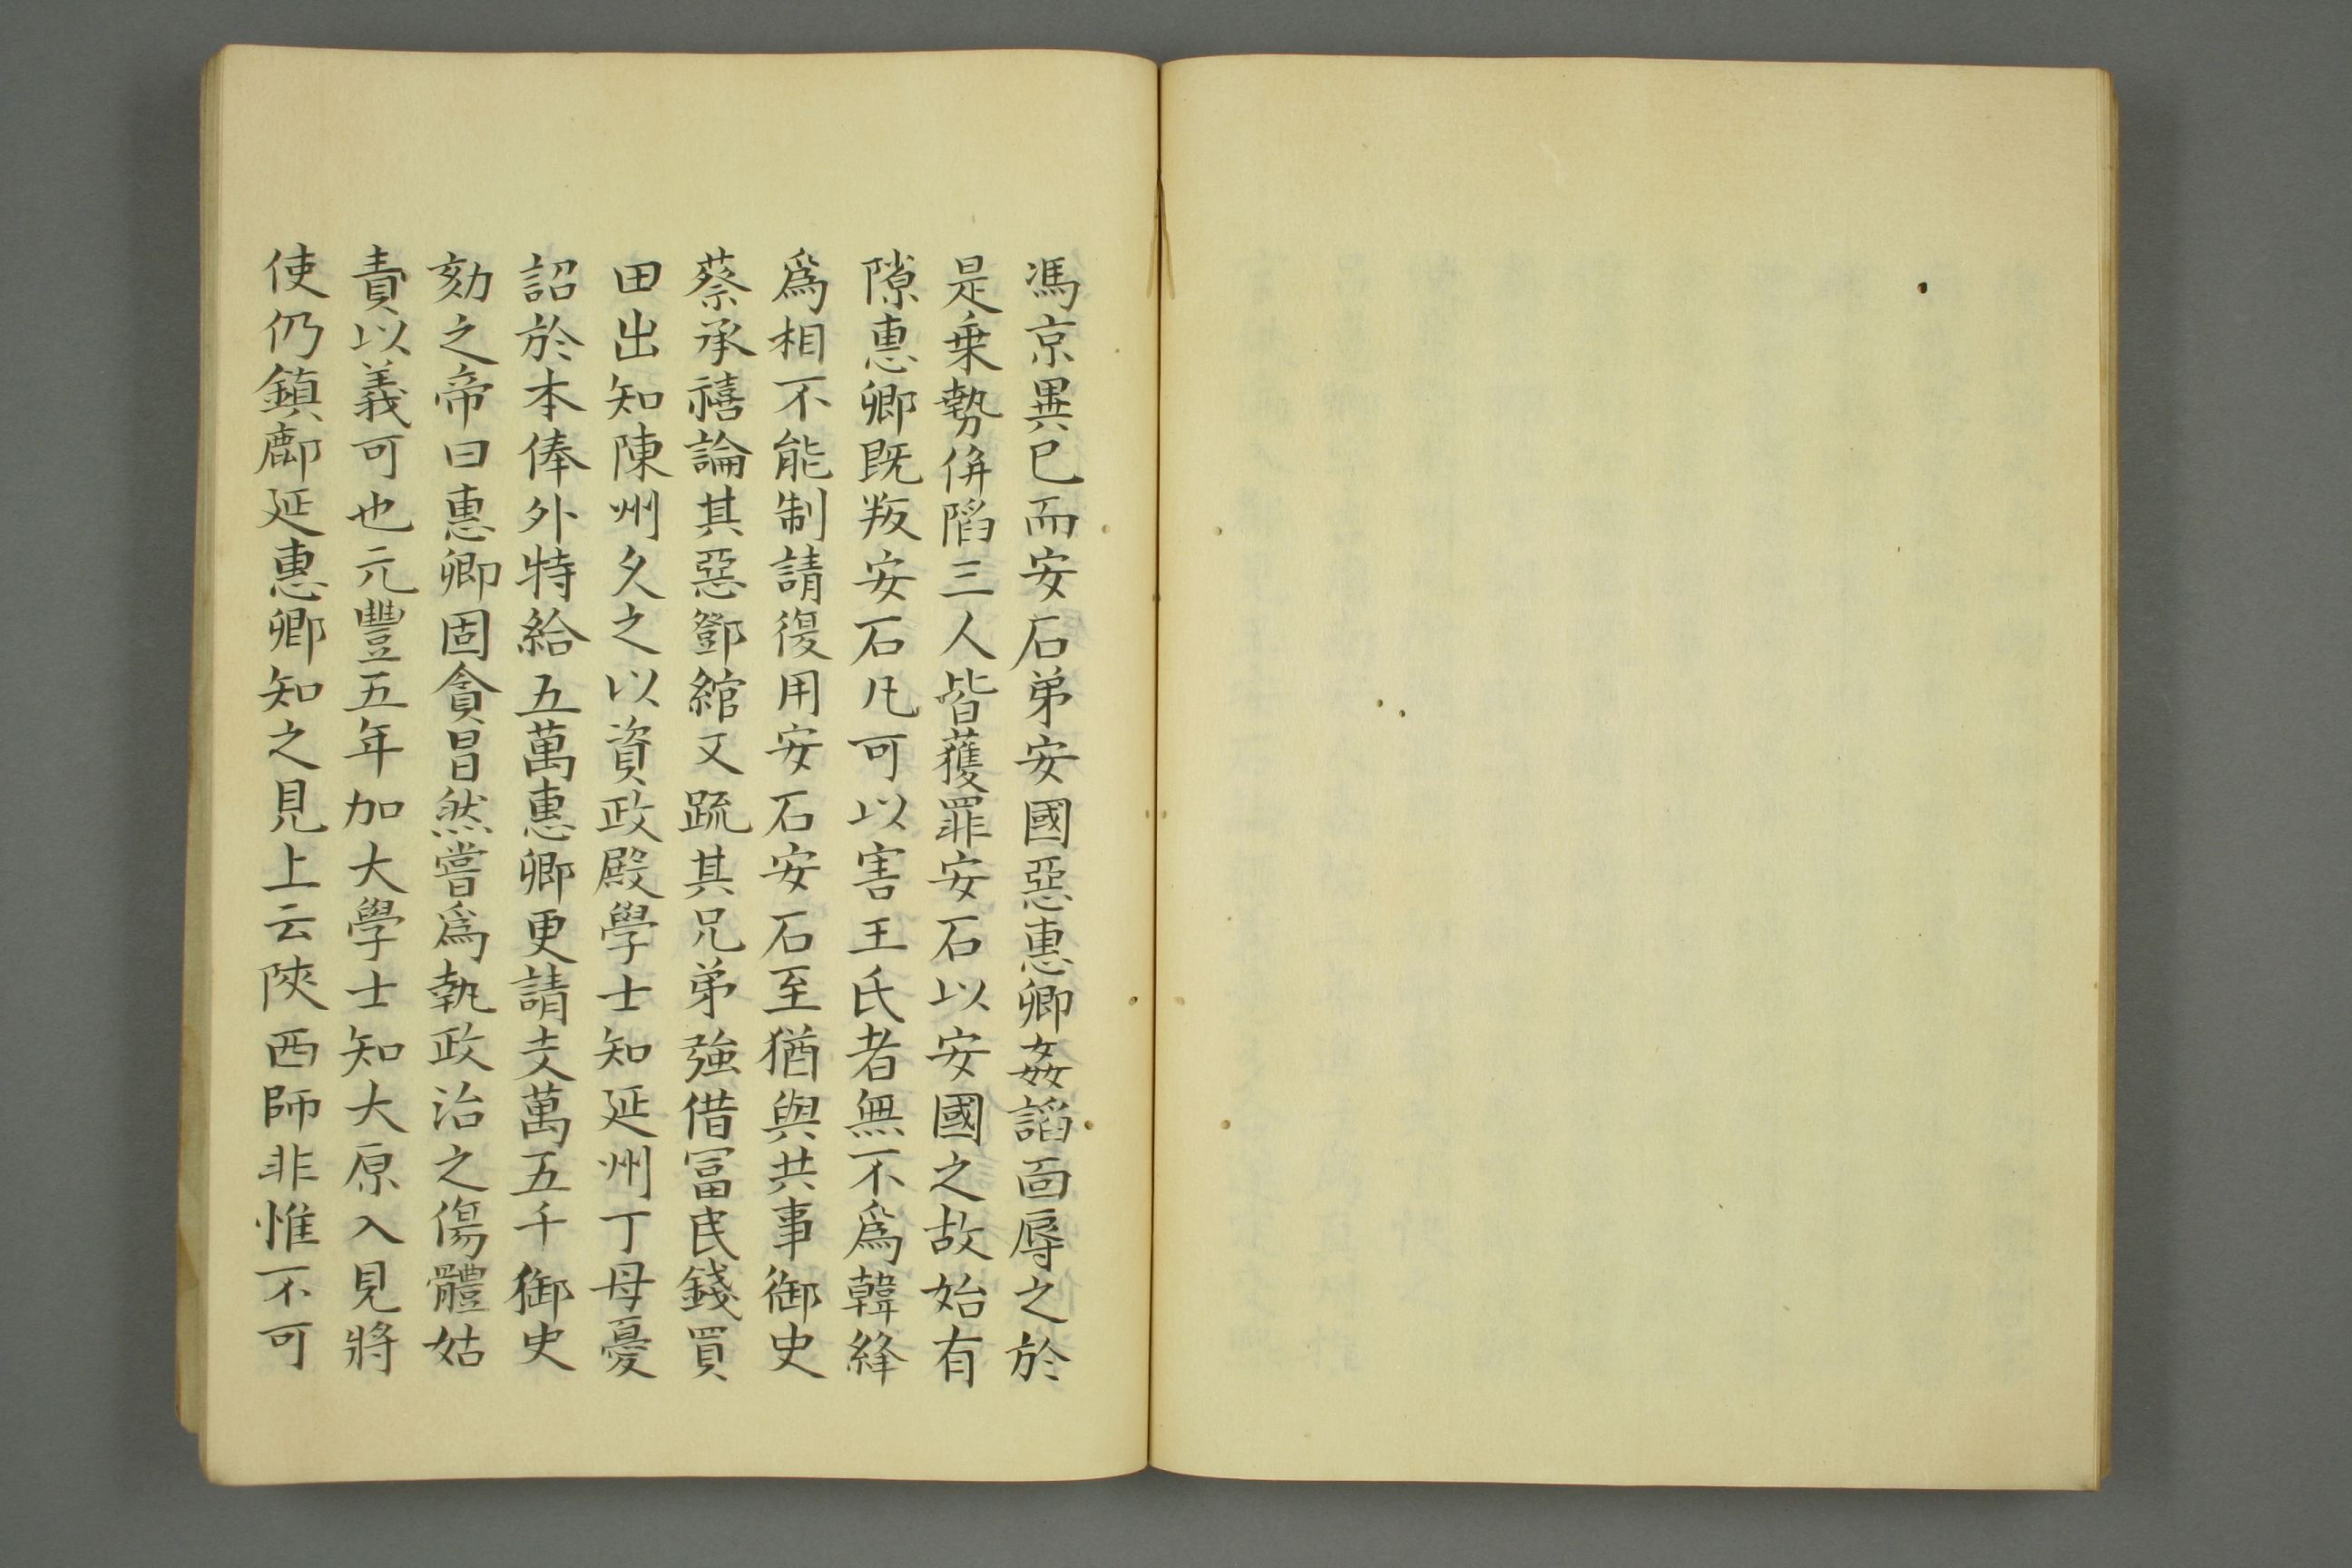 馮京異已而安石弟安國惡惠卿姦謟面辱之於
是乗勢併陷三人皆獲罪安石以安國之故始有
隙惠卿既叛安石凡可以害王氏者無不爲韓絳
爲相不能制請復用安石安石至猶與共事御史
蔡承禧論其惡鄧綰又䟽其兄弟強借冨民錢買
田出知陳州久之以資政殿學士知延州丁母憂
詔於本俸外特給五萬惠卿更請支萬五千御史
劾之帝曰惠卿固貪冒然嘗爲執政治之傷體姑
責以義可也元豐五年加大學士知大原入見將
使仍鎮鄜延惠卿知之見上云陜西師非惟不可